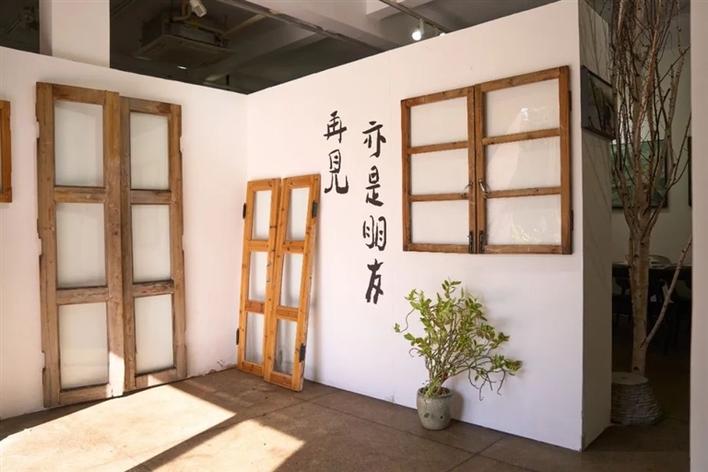 再見
亦是朋友